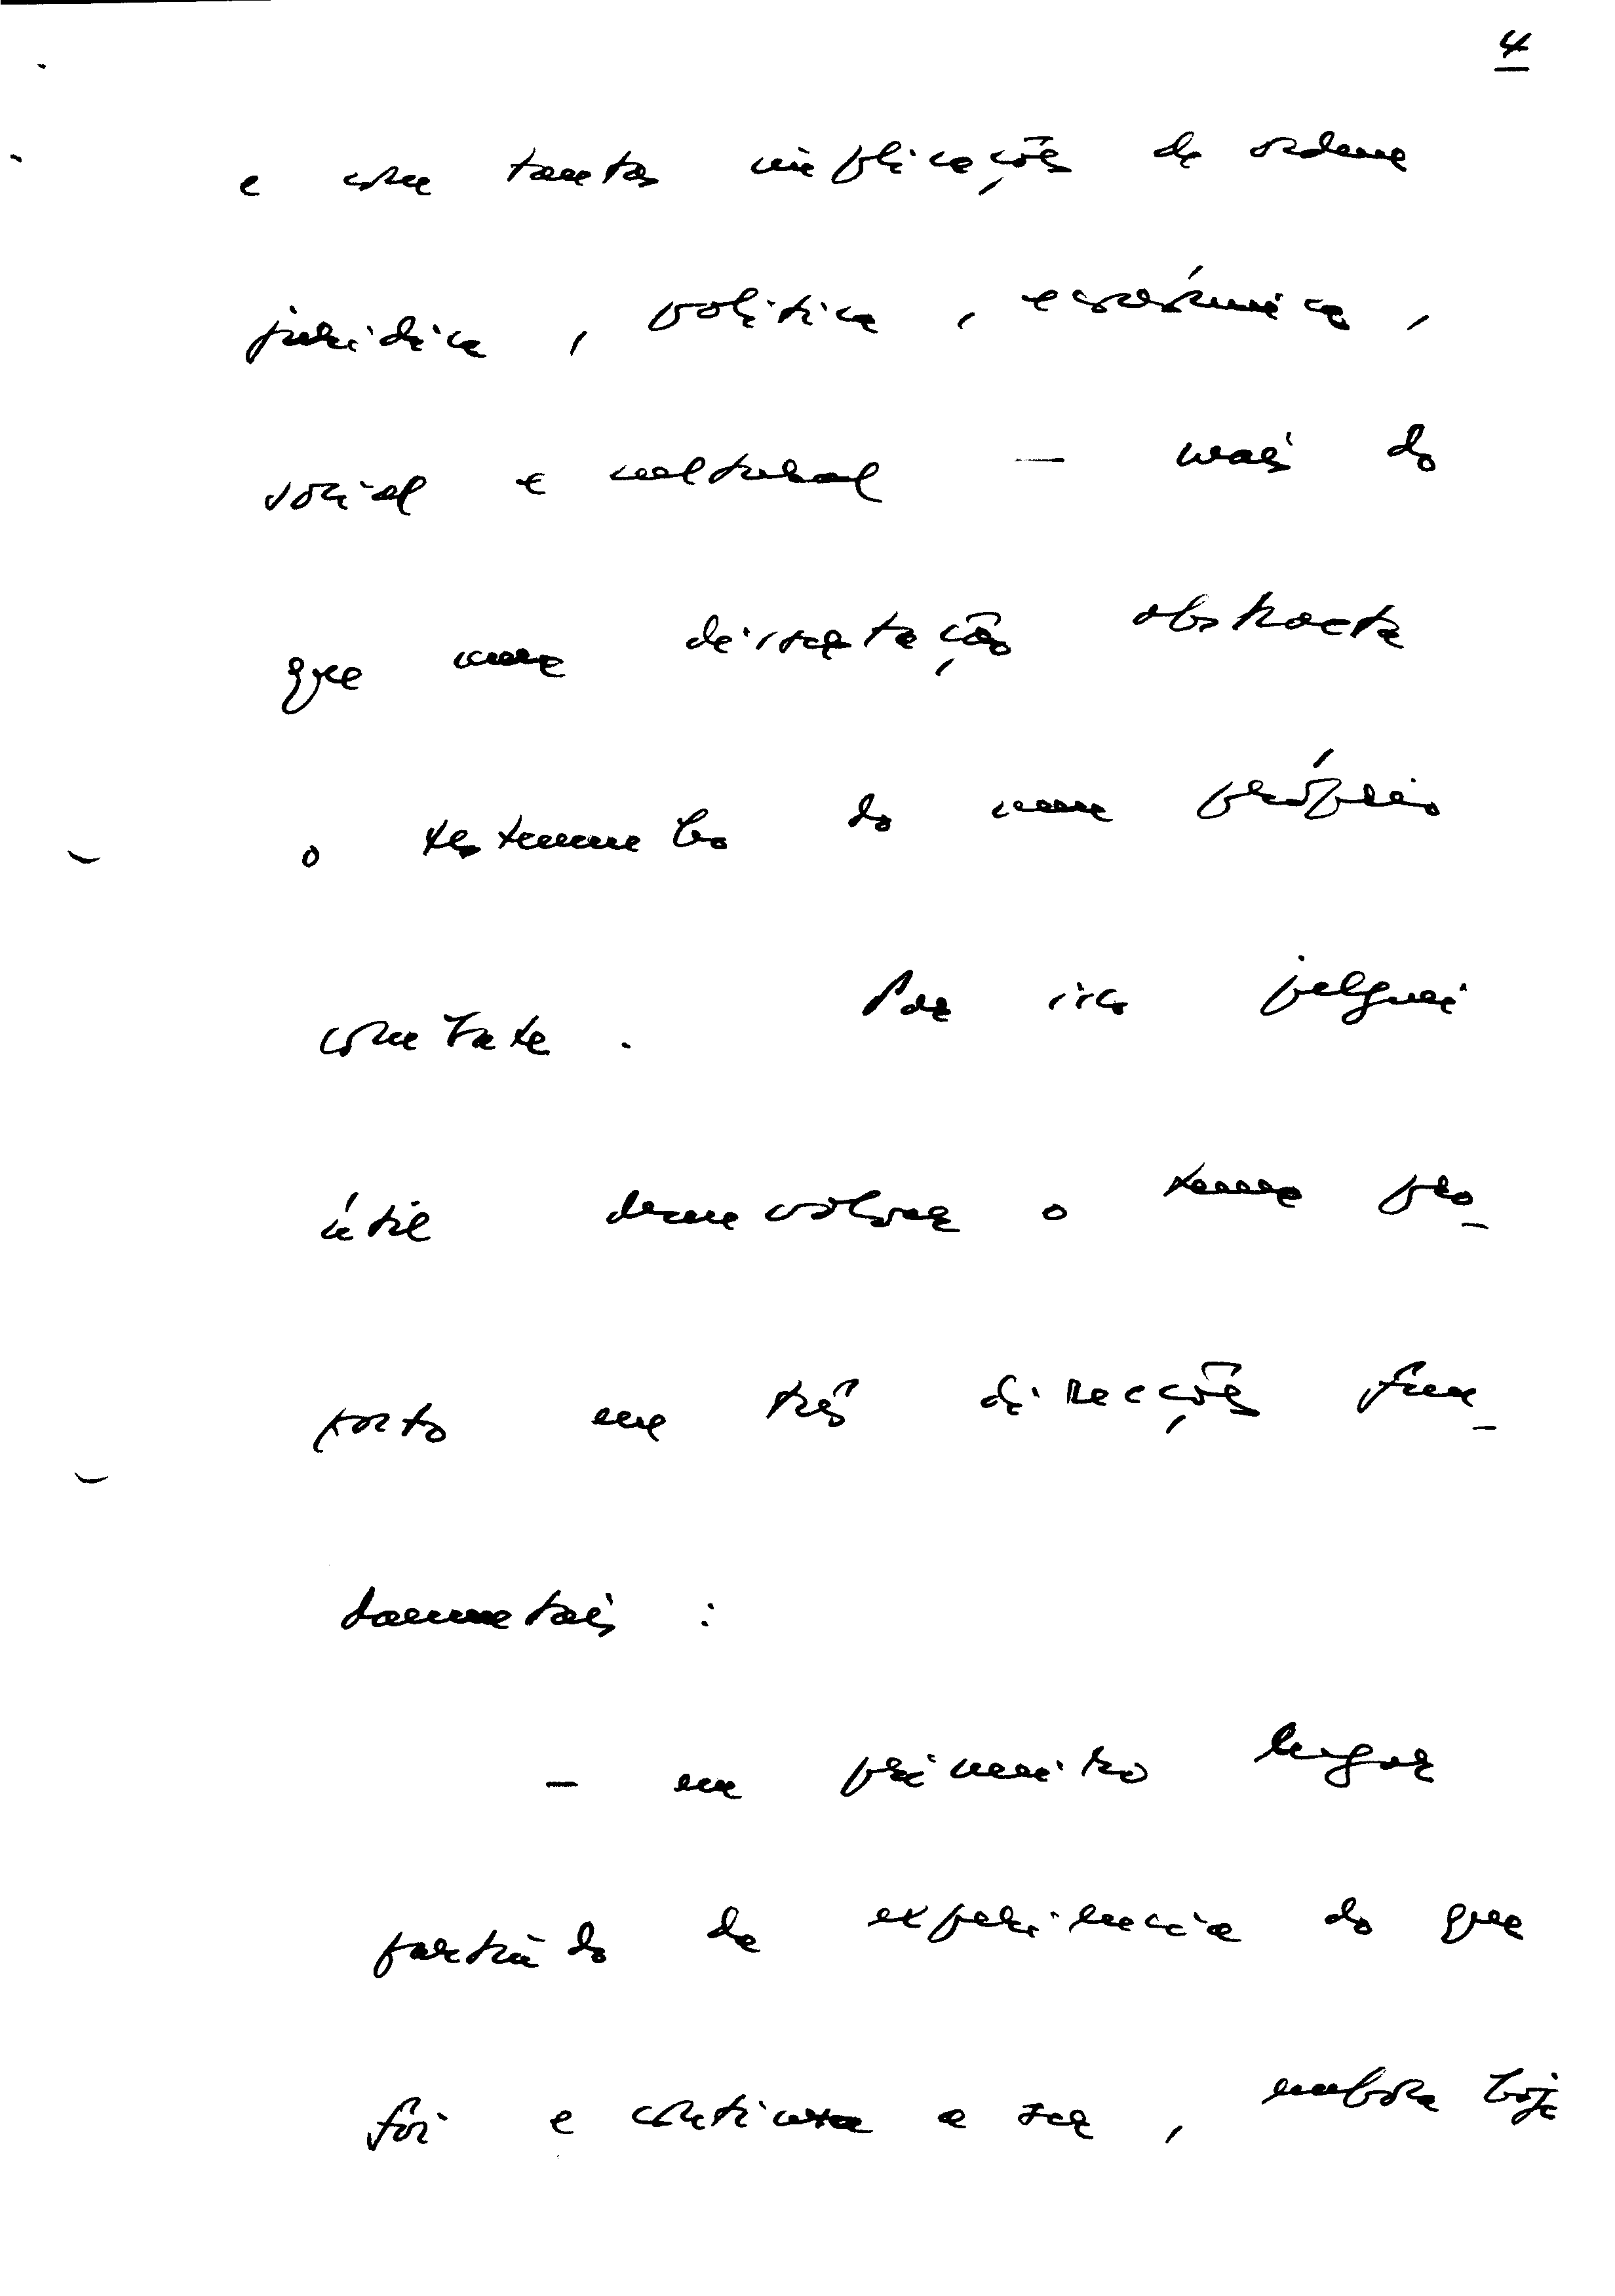 4
e com tantas implicações de ordem
jurídica, política, económica,
social e cultural — mais do
que uma dissertação abstracta
o testemunho do meu próprio
combate. Por isso julguei
útil desenvolver o tema pro-
posto em três direcções fun-
damentais:
— em primeiro lugar
partindo da experiência do que
foi e continua a ser, embora hoje